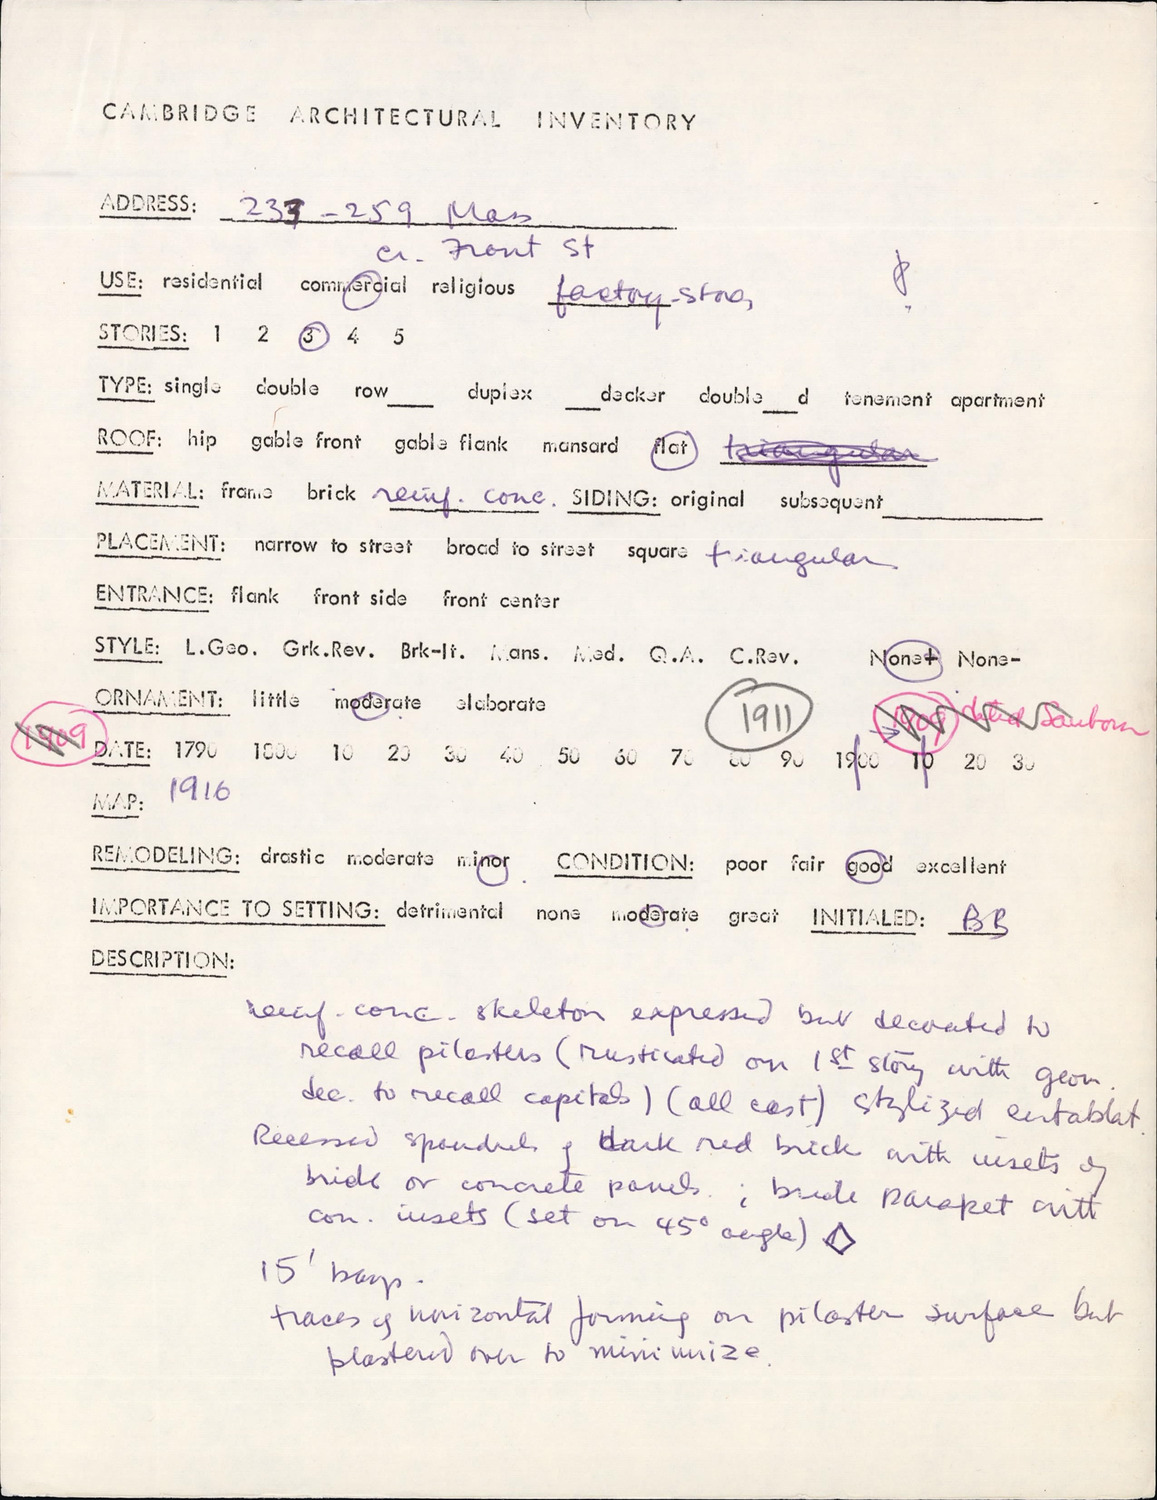 CAMBRIDGE ARCHITECTURAL INVENTORY
ADDRESS: 237 - 259 Mass
cr. Front St
USE: residential commercial religious factory-stores
STORIES: 1 2 3 4 5
TYPE: single double row___ duplex ___decker double___d tenement apartment
ROOF: hip gable front gable flank mansard flat triangular
MATERIAL: frame brick reinf. conc. SIDING: original subsequent
PLACEMENT: narrow to street broad to street square triangular
ENTRANCE: flank front side front center
STYLE: L.Geo. Grk.Rev. Brk-It. Mans. Med. Q.A. C.Rev. None+ None-
ORNAMENT: little moderate elaborate 1911 1909 dated Sanborn
1909 DATE: 1790 1800 10 20 30 40 50 60 70 80 90 1900 10 20 30
MAP: 1916
REMODELING: drastic moderate minor CONDITION: poor fair good excellent
IMPORTANCE TO SETTING: detrimental none moderate great INITIALED: BB
DESCRIPTION:
reinf. conc. skeleton expressed but decorated to
recall pilasters (rusticated on 1st story with geom.
dec. to recall capitals) (all cast) stylized entablat.
Recessed spandrels of dark red brick with insets of
brick or concrete panels; brick parapet with
con. insets (set on 45° angle)
15' bays.
traces of horizontal forming on pilaster surface but
plastered over to minimize.